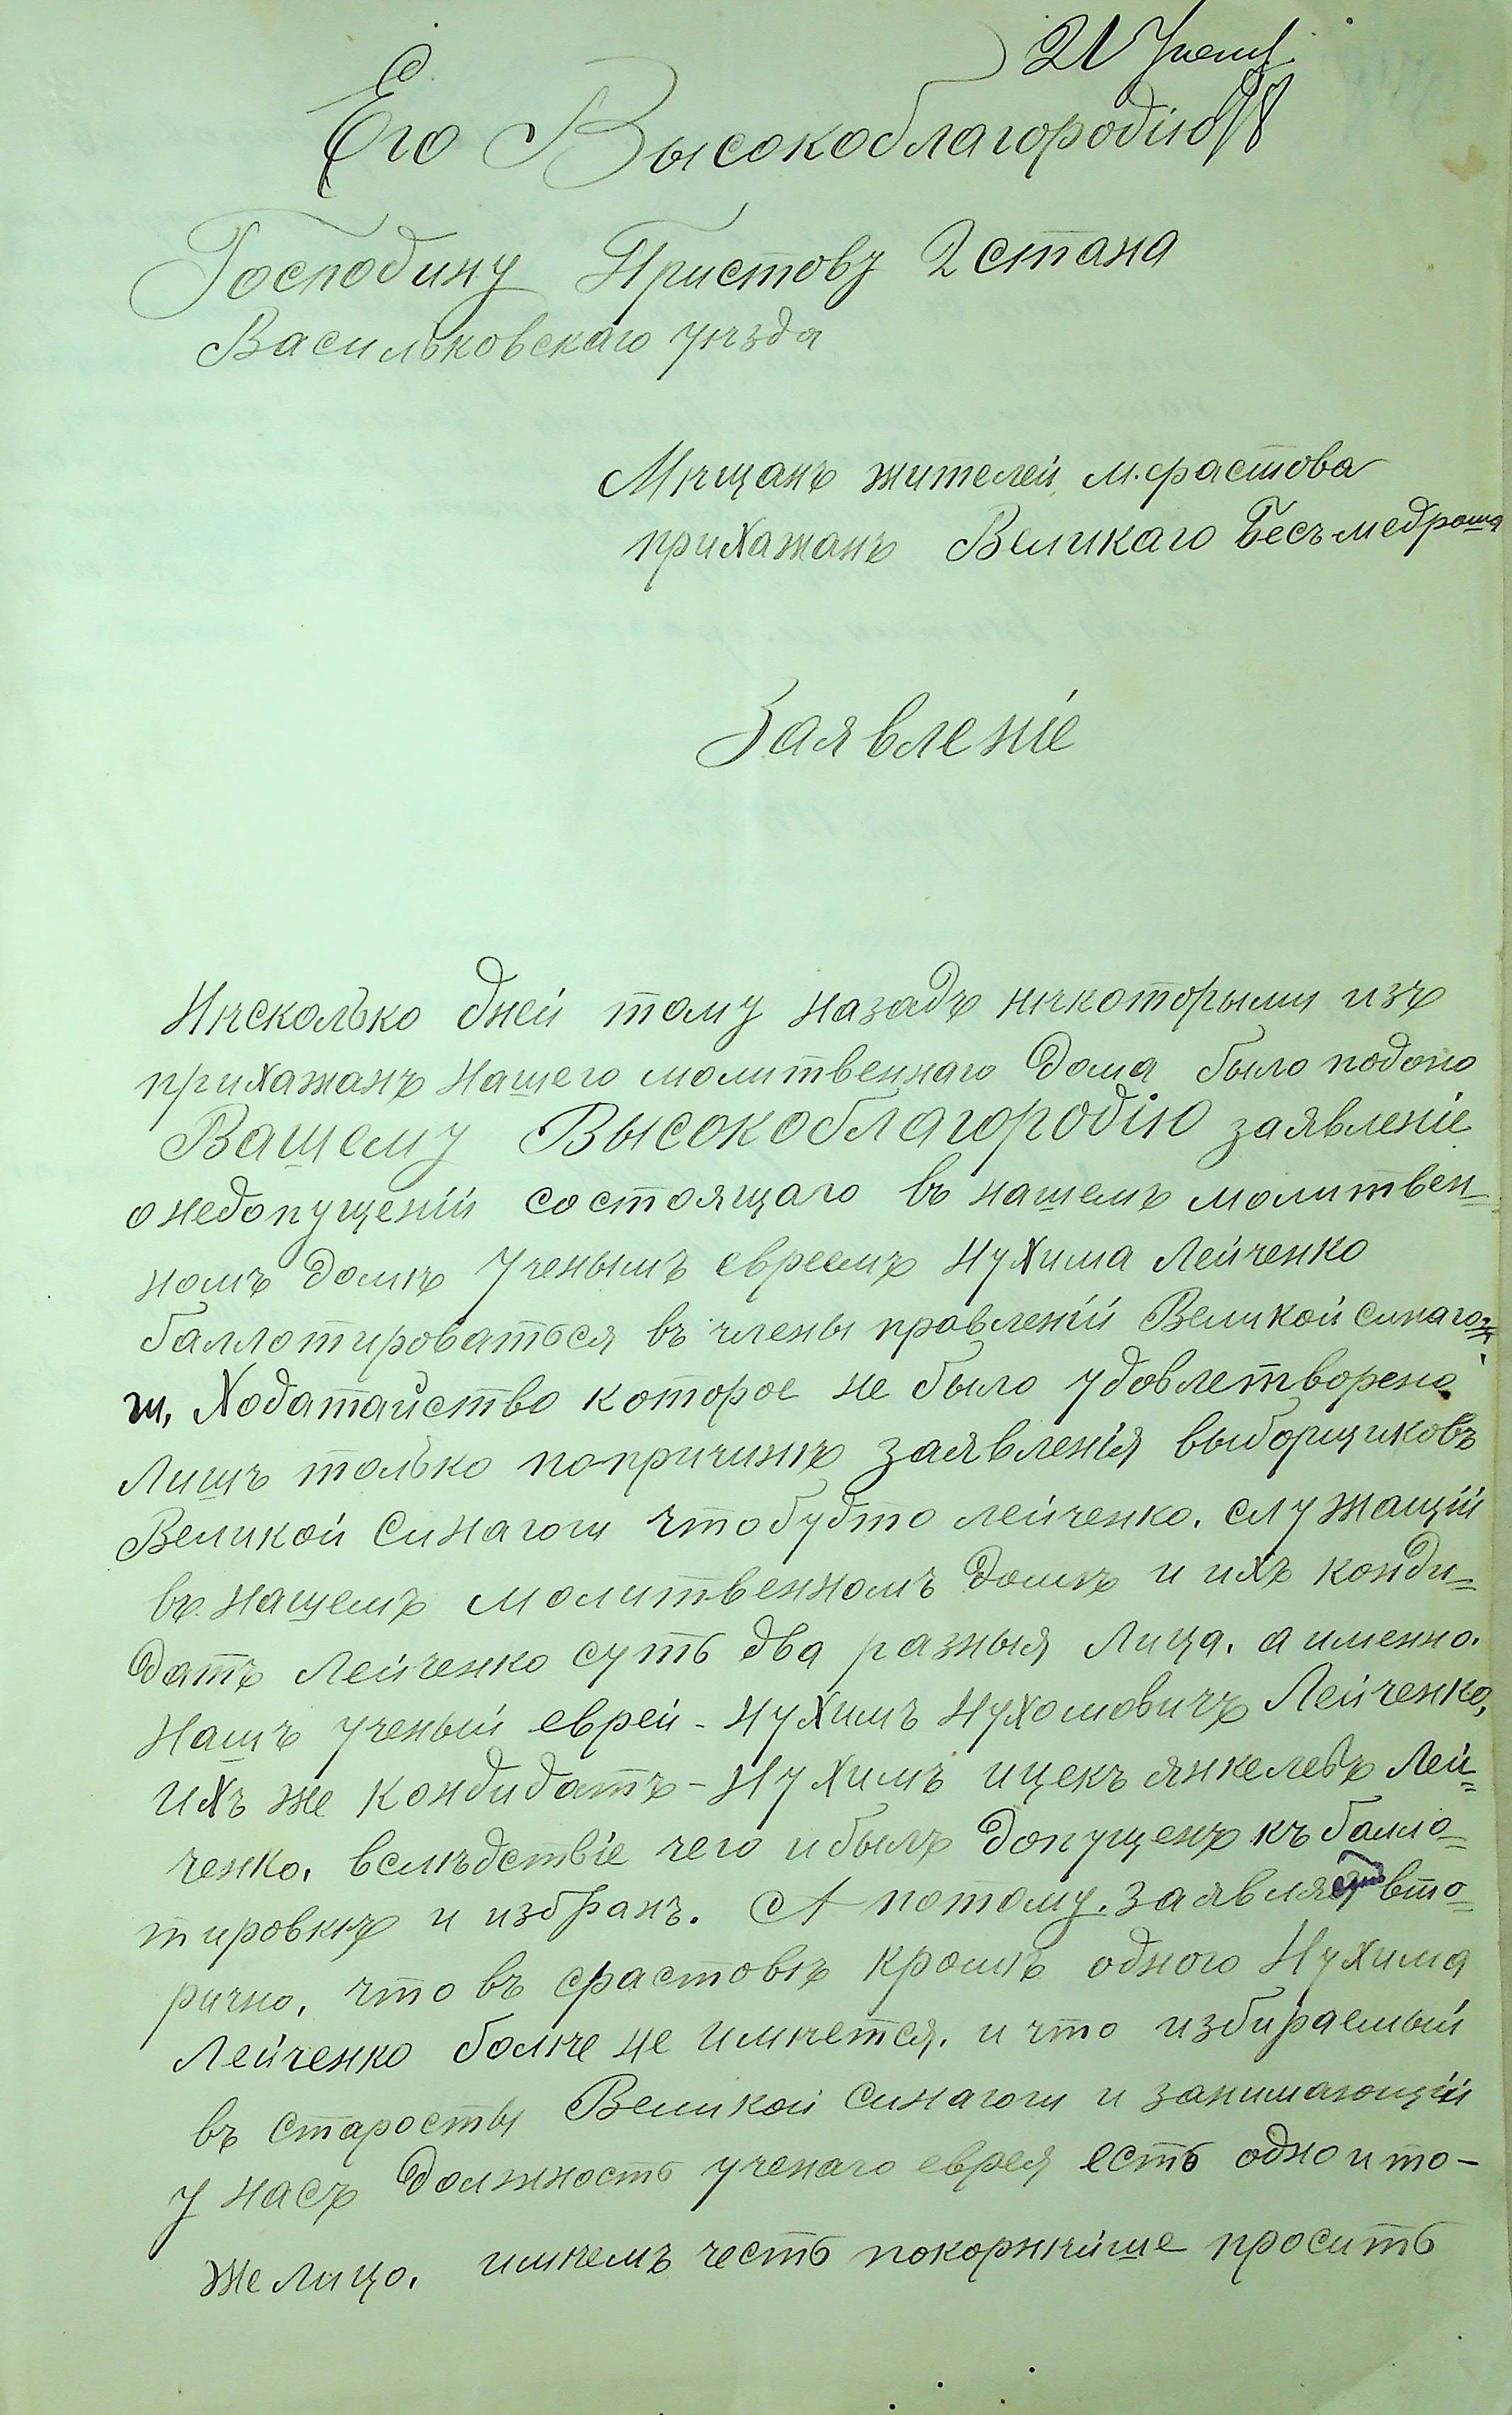 21
Его Высокоблагородію
Господину Приставу 2 стана
Васильковскаго уѣзда
Мѣщанъ жителей м. Фастова
прихажанъ Великаго Бесъ медроша
Заявленіе
Нѣсколько дней тому назадъ нѣкоторыми изъ
прихажанъ нашего молитвеннаго дома было подоно
Вашему Высокоблагородію заявленіе
о недопущеніи состоящаго въ нашемъ молитвен=
номъ домѣ ученымъ евреемъ Нухима Лейченко
баллотироваться въ члены правленій Великой синаго=
ги, Ходатайство которое не было удовлетворено
Лишъ только по причинѣ заявленія выборщиковъ
Великой Синагоги что будто Лейченко. служащій
въ нашемъ молитвенномъ домѣ и ихъ конди=
датъ Лейченко суть два разныя Лица. а именно.
Нашъ ученый еврей - Нухимъ Нухомовичъ Лейченко,
ихъ же кондидатъ - Нухимъ ицекъ янкелевъ Лей=
ченко, вслѣдствіе чего и былъ допущенъ къ балло=
тировкѣ и избранъ. А потому. заявляя вто=
рично, что въ Фастовѣ кромѣ одного Нухима
Лейченко болѣе не имѣется. и что избираемый
въ старосты Великой Синагоги и занимающій
у насъ должность ученаго еврея есть одно и то-
же лицо, имѣемъ честь покорнѣйше просить